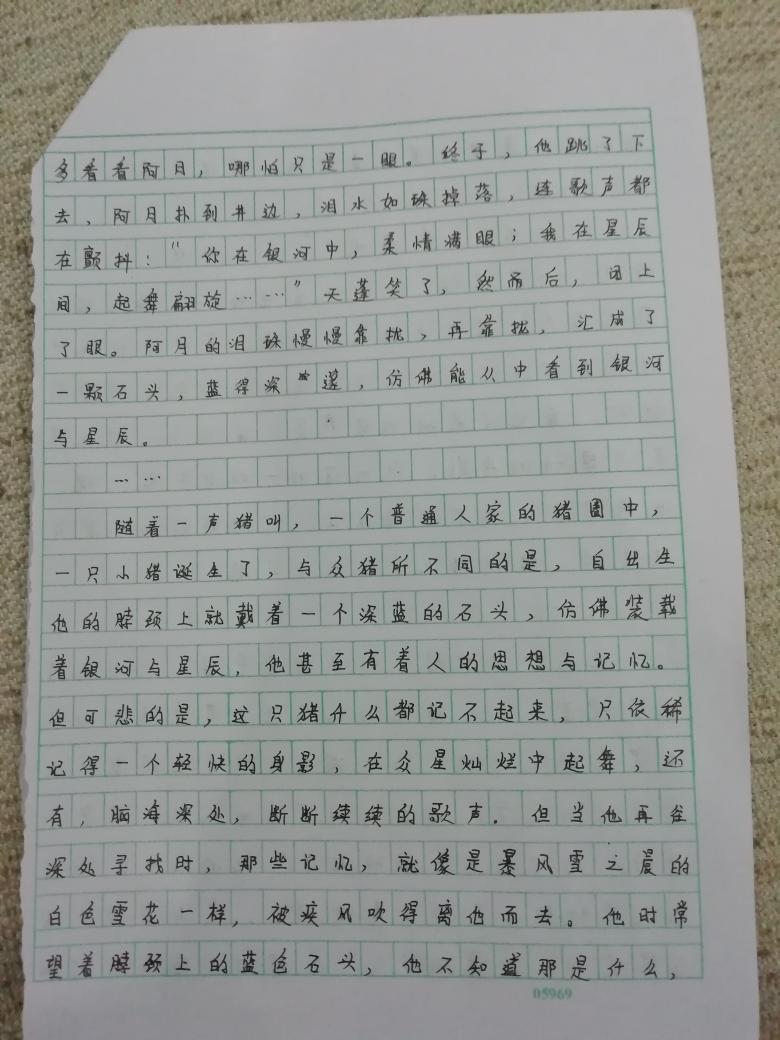 多看看阿月，哪怕只是一眼。终于，他跳了下
去，阿月扑到井边，泪水如珠掉落，连歌声都
在颤抖：“你在银河中，柔情满眼；我在星辰
间，起舞翩旋……”天蓬笑了，然而后，闭上
了眼。阿月的泪珠慢慢靠拢，再靠拢，汇成了
一颗石头，蓝得深邃，仿佛能从中看到银河
与星辰。
……
随着一声猪叫，一个普通人家的猪圈中，
一只小猪诞生了，与众猪所不同的是，自出生
他的脖颈上就戴着一个深蓝的石头，仿佛装载
着银河与星辰，他甚至有着人的思想与记忆。
但可悲的是，这只猪什么都记不起来，只依稀
记得一个轻快的身影，在众星灿烂中起舞，还
有，脑海深处，断断续续的歌声。但当他再往
深处寻找时，那些记忆，就像是暴风雪之晨的
白色雪花一样，被疾风吹得离他而去。他时常
望着脖颈上的蓝色石头，他不知道那是什么，
05969